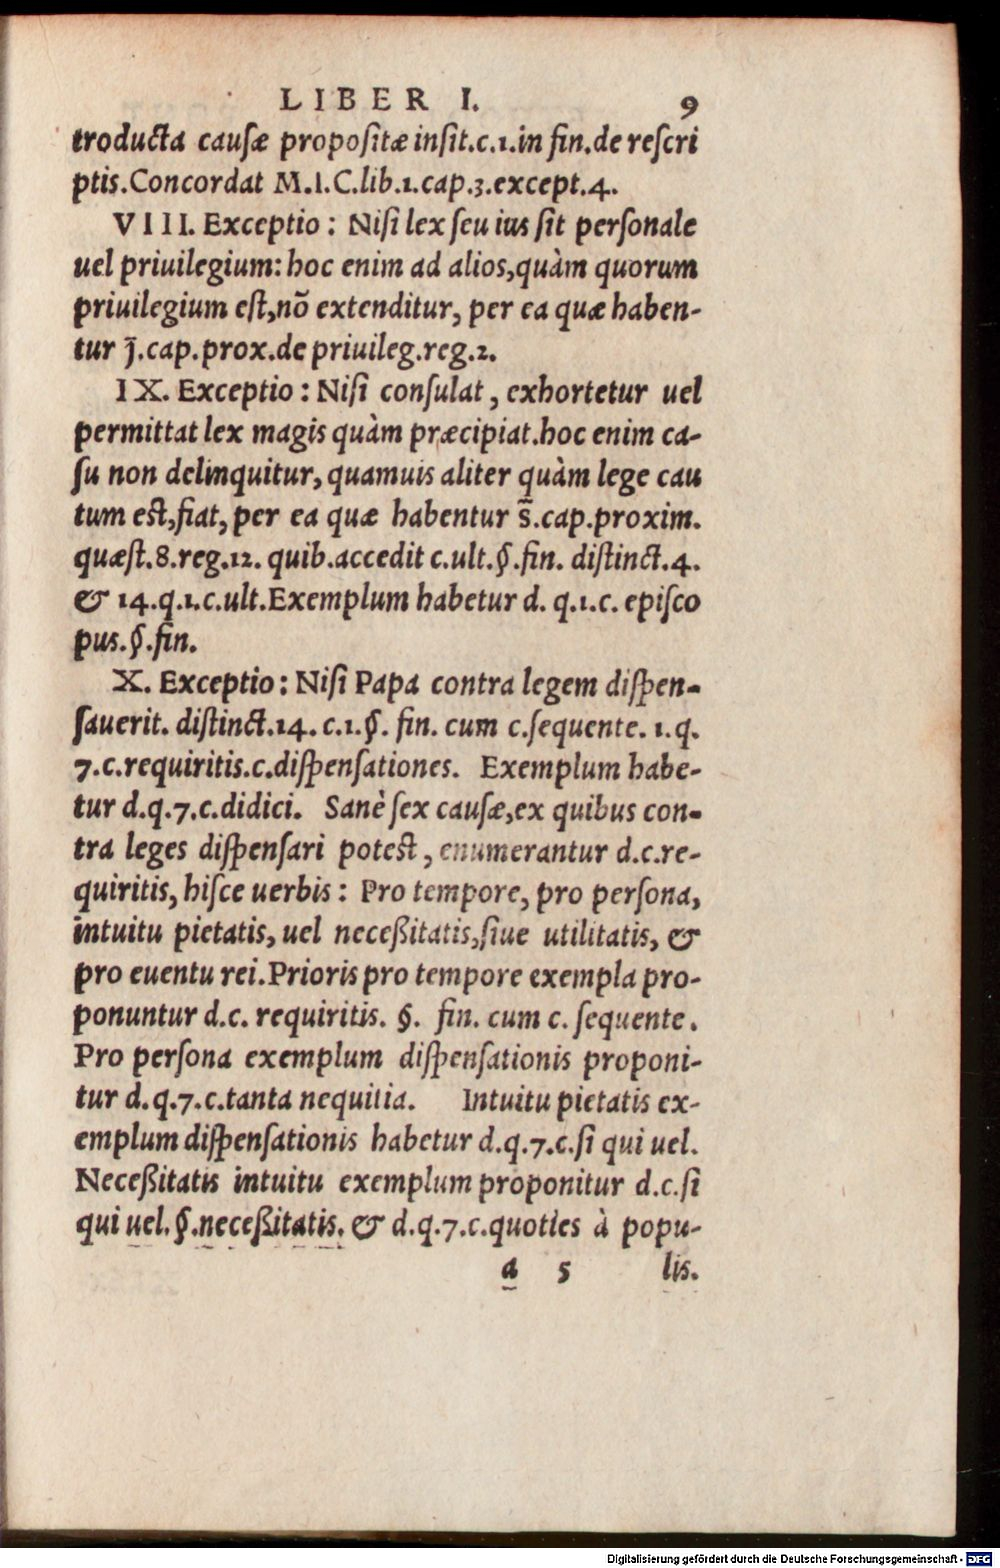 LIBER I. 9
troducta causæ propositæ insit.c.1.in fin.de rescri
ptis.Concordat M.I.C.lib.1.cap.3.except.4.
VIII. Exceptio: Nisi lex seu ius sit personale
uel priuilegium: hoc enim ad alios,quàm quorum
priuilegium est,nõ extenditur, per ea quæ haben-
tur j̃.cap.prox.de priuileg.reg.2.
IX. Exceptio: Nisi consulat, exhortetur uel
permittat lex magis quàm præcipiat.hoc enim ca-
su non delinquitur, quamuis aliter quàm lege cau
tum est,fiat, per ea quæ habentur s̃.cap.proxim.
quæst.8.reg.12. quib.accedit c.ult.§.fin. distinct.4.
& 14.q.1.c.ult.Exemplum habetur d. q.1.c. episco
pus.§.fin.
X. Exceptio: Nisi Papa contra legem dispen-
sauerit. distinct.14. c.1.§. fin. cum c.sequente. 1.q.
7.c.requiritis.c.dispensationes. Exemplum habe-
tur d.q.7.c.didici. Sanè sex causæ,ex quibus con-
tra leges dispensari potest, enumerantur d.c.re-
quiritis, hisce uerbis: Pro tempore, pro persona,
intuitu pietatis, uel neceßitatis,siue utilitatis, &
pro euentu rei.Prioris pro tempore exempla pro-
ponuntur d.c. requiritis. §. fin. cum c. sequente.
Pro persona exemplum dispensationis proponi-
tur d.q.7.c.tanta nequitia. Intuitu pietatis ex-
emplum dispensationis habetur d.q.7.c.si qui uel.
Neceßitatis intuitu exemplum proponitur d.c.si
qui uel.§.neceßitatis. & d.q.7.c.quoties à popu-
a 5 lis.
Digitalisierung gefördert durch die Deutsche Forschungsgemeinschaft - DFG